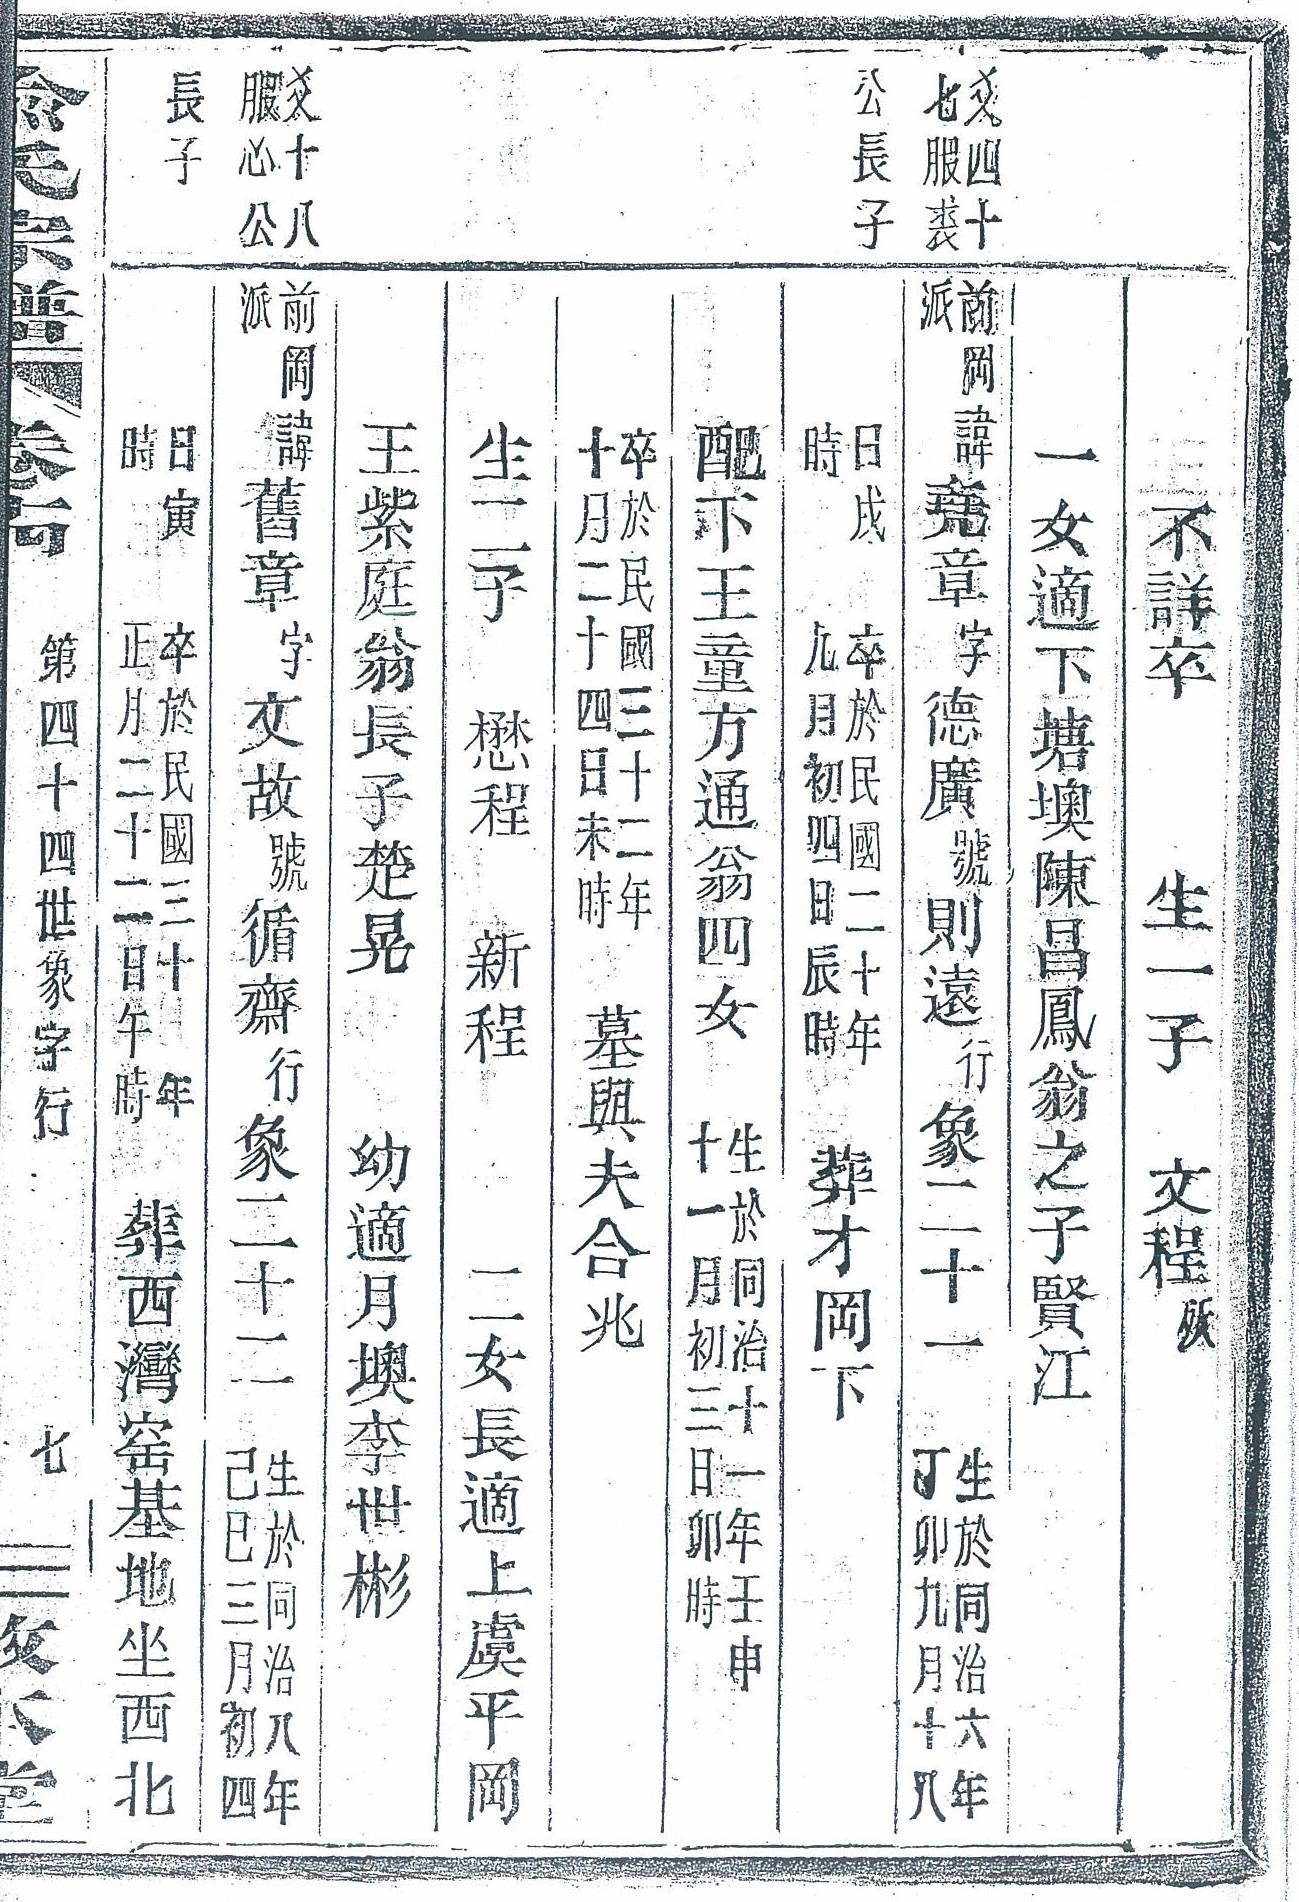 不詳卒　生一子　文程殀
一女適下塘墺陳昌鳳翁之子賢江
爻四十
七服裘
公長子
前岡
派
諱堯章字德廣號則遠行象二十一
生於同治六年
丁卯九月十八
日戌
時
卒於民國二十年
九月初四日辰時
葬才岡下
配下王童方通翁四女
生於同治十一年壬申
十一月初三日卯時
卒於民國三十二年
十月二十四日未時
墓與夫合兆
生二子　懋程　新程　二女長適上虞平岡
王紫庭翁長子楚晃　幼適月墺李世彬
爻十八
服心公
長子
前岡
派
諱舊章字文故號循齋行象二十二
生於同治八年
己巳三月初四
日寅
時
卒於民國三十年
正月二十二日午時
葬西灣窑基地坐西北
俞氏宗譜　卷　第四十四世象字行　七　敦本堂